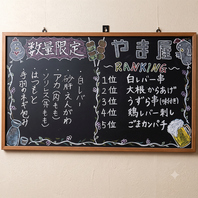 数量限定
・白レバー
・砂肝えんがわ
・アカ(内もも)
・ソリレス(外もも)
・はつもと
・手羽のネギ包み
やき屋
～RANKING～
1位 白レバー串
2位 大根からあげ
3位 うずら串(味付き)
4位 鶏レバー刺し
5位 ごまカンパチ